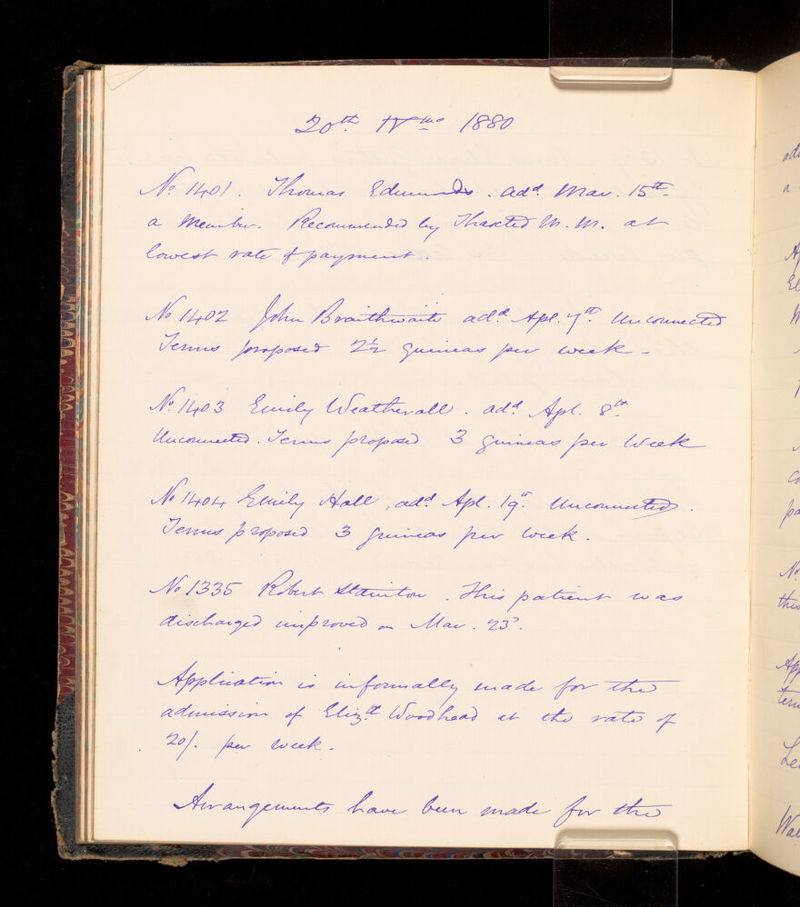 20th IVmo 1880
No. 1401. Thomas Edmunds. add. Mar. 15th.
a Member. Recommended by Thaxted M.M. at
lowest rate of payment.
No 1402 John Braithwaite add. Apl. 7th. Unconnected
Terms proposed 2½ guineas per week -
No. 1403 Emily Weatherall. add. Apl. 8th.
Unconnected. Terms proposed 3 guineas per Week
No 1404 Emily Hall, add. Apl. 19th. Unconnected.
Terms proposed 3 guineas per week.
No 1335 Robert Stainton. This patient was
discharged improved on Mar. 23d.
Application is informally made for the
admission of Elizth. Woodhead at the rate of
20/. per week.
Arrangements have been made for the